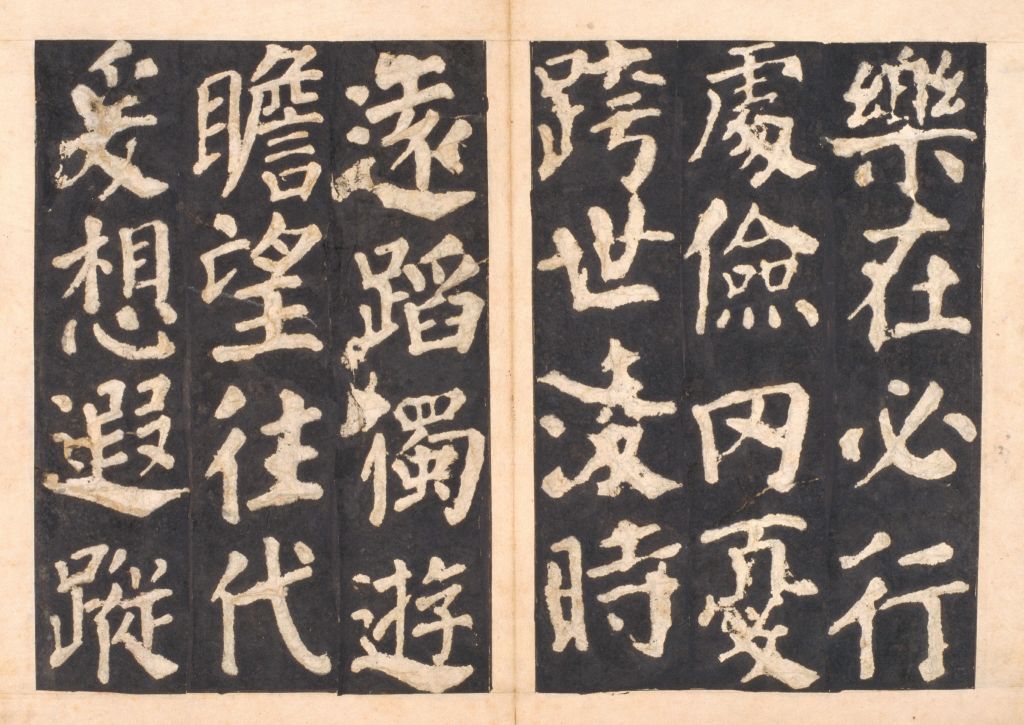 樂在必行
處儉罔憂
跨世淩時
遠蹈獨遊
瞻望往代
爰想遐蹤